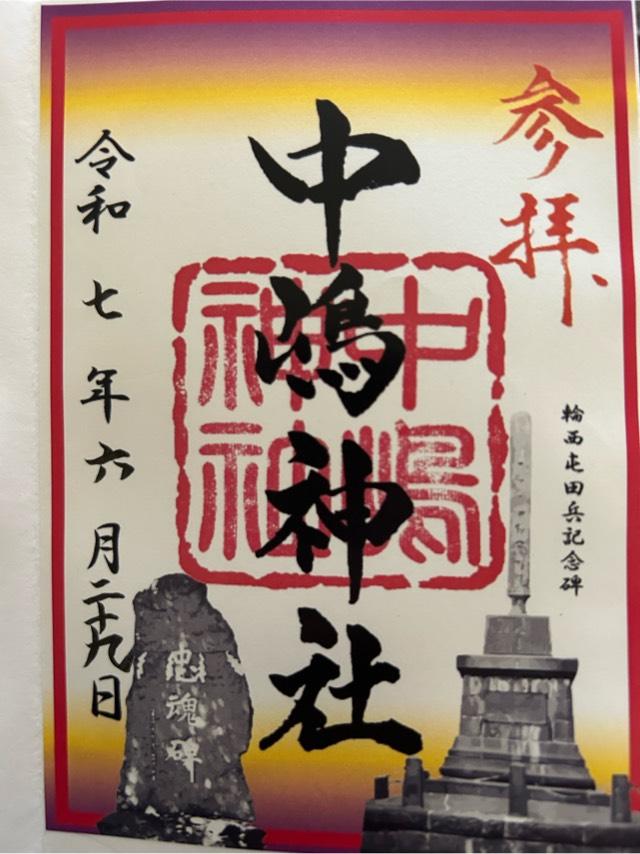 参拝
輪西屯田兵記念碑
中嶋神社
中嶋神社
令和七年六月二十九日
忠魂碑